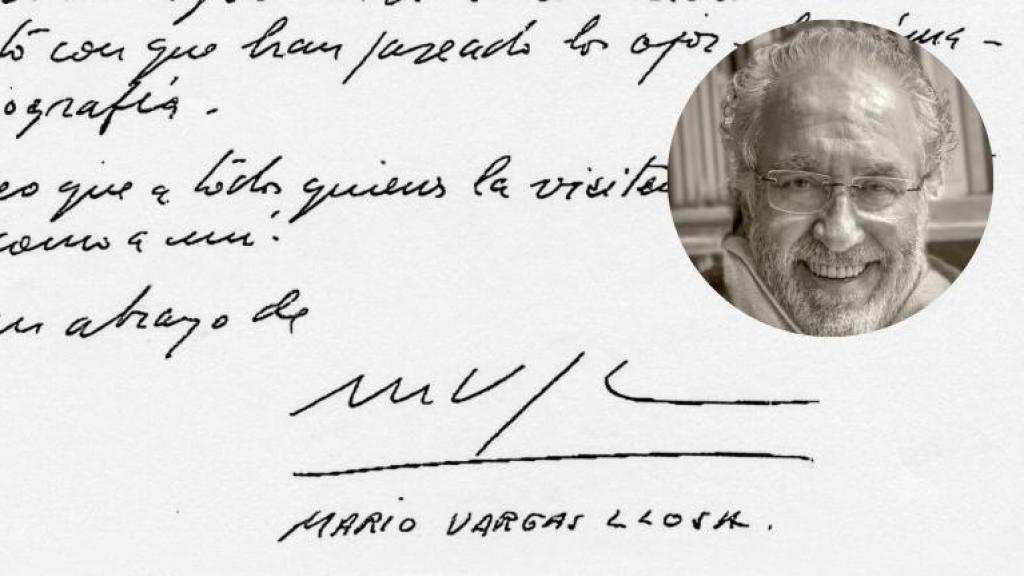 tó con que han paseado los ojos
ografía.
eo que a todos quienes la visiten
como a mí.
un abrazo de
MARIO VARGAS LLOSA.